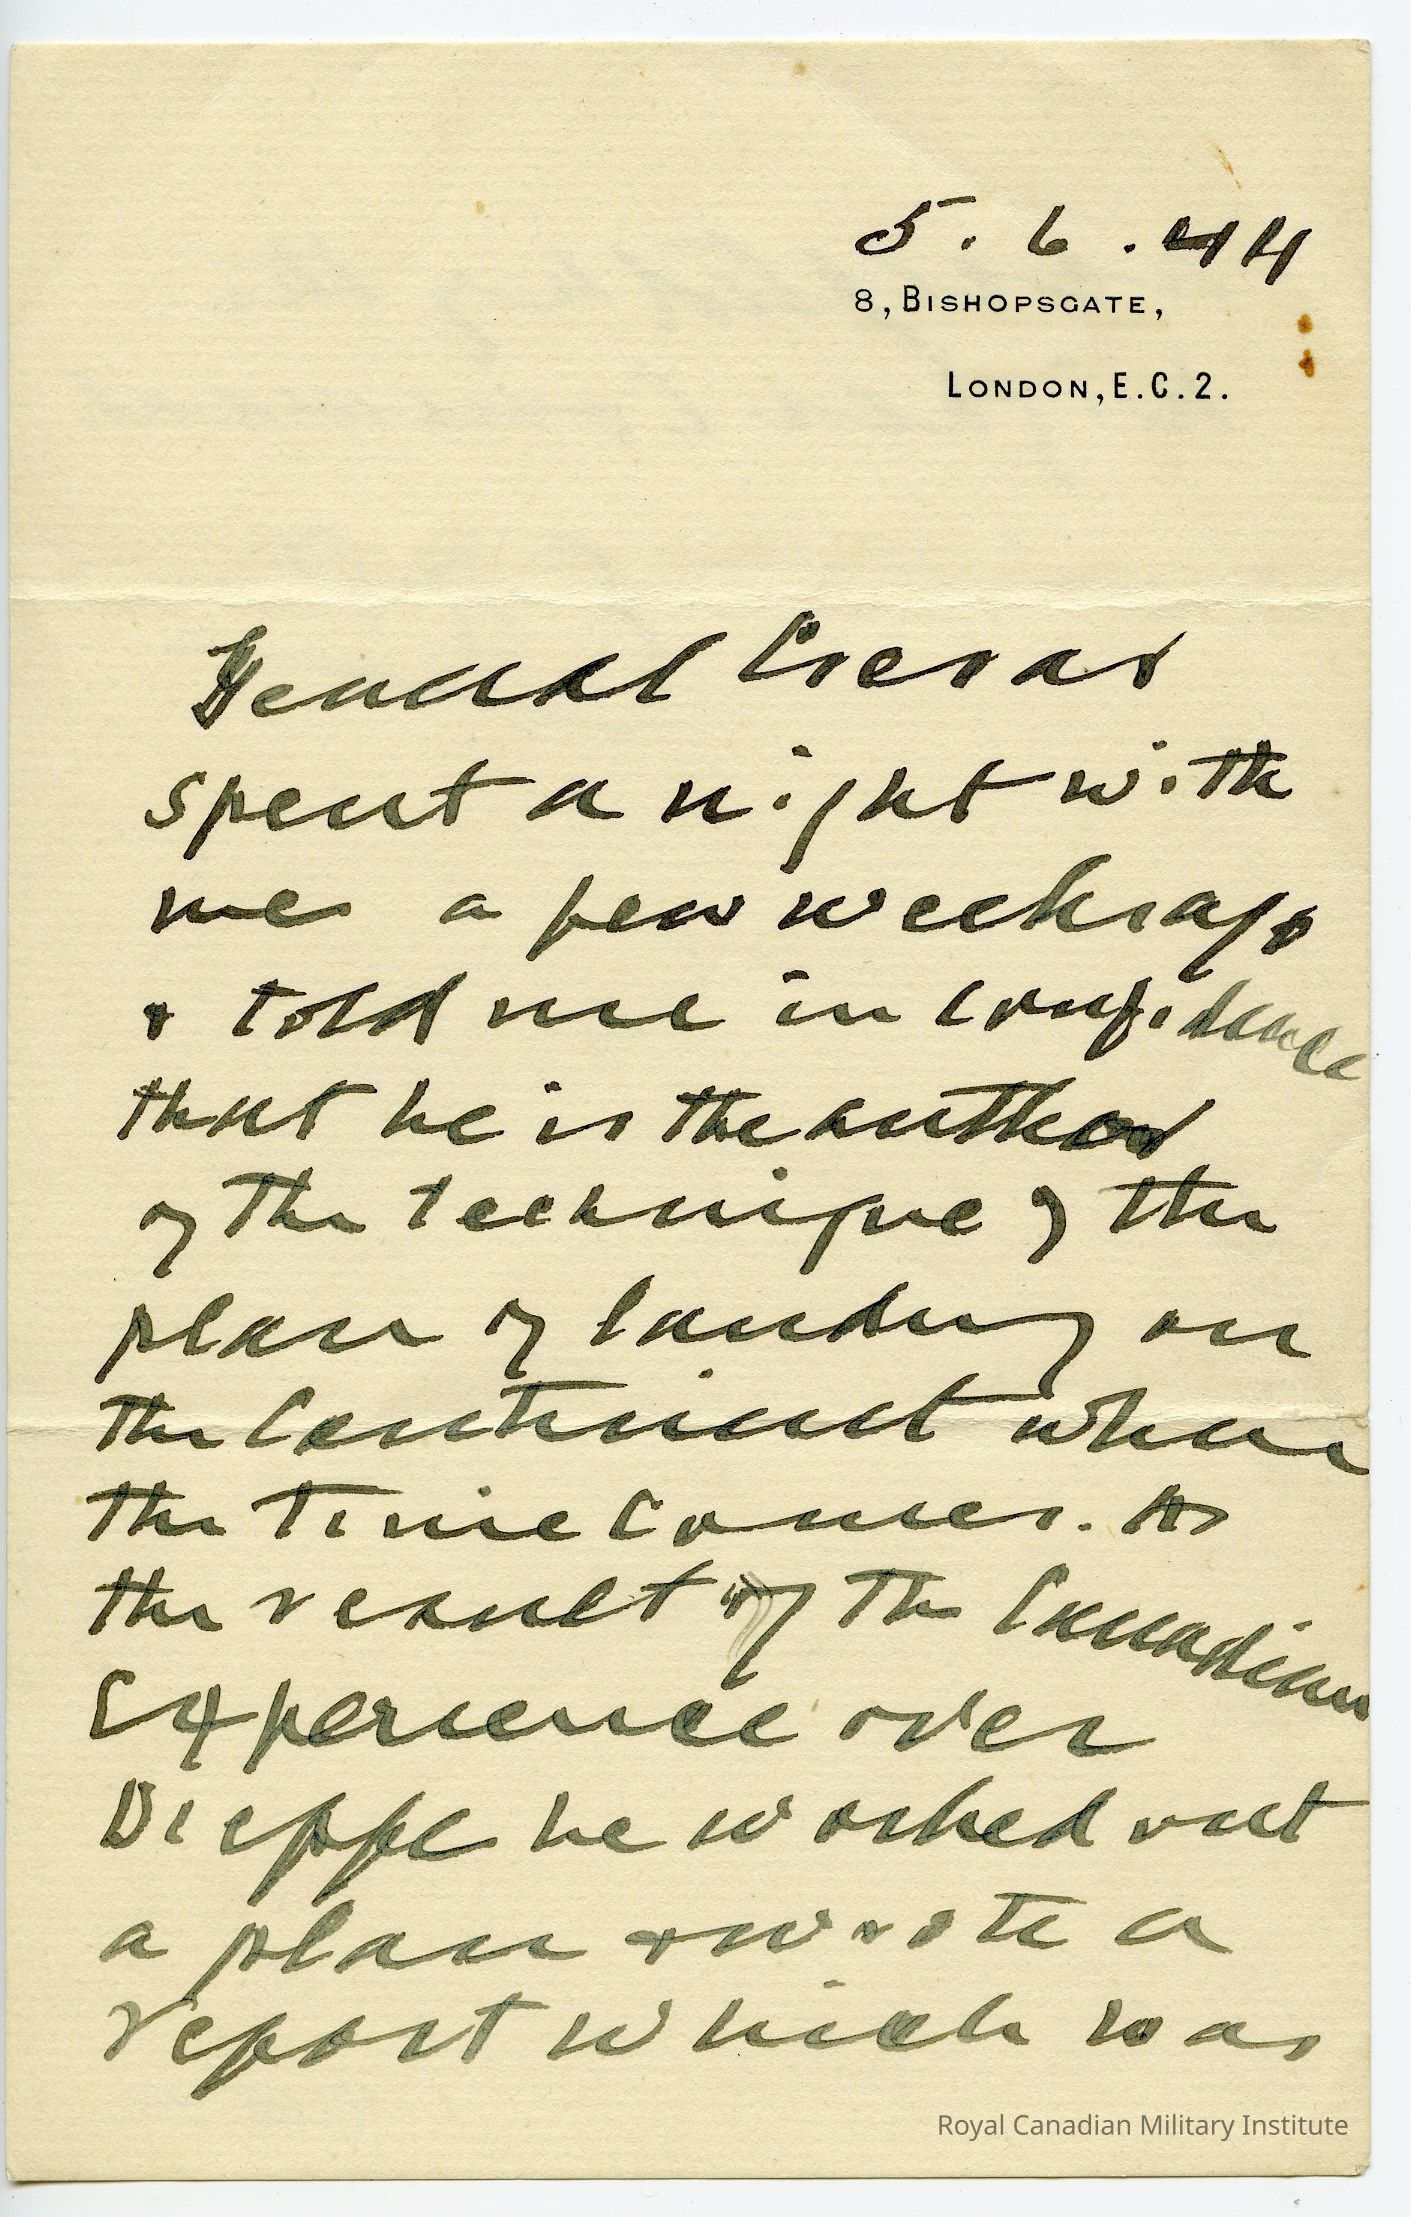 5. 6. 44
8, BISHOPSGATE,
LONDON, E.C.2.
General Crerar
spent a night with
me a few weeks ago
& told me in confidence
that he is the author
of the technique of the
plan of landing on
the Continent when
the time comes. As
the result of the Canadian
Experience over
Dieppe he worked out
a plan & wrote a
report which was
Royal Canadian Military Institute